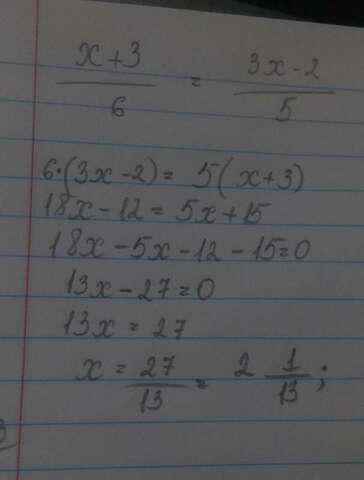 x+3/6 = 3x-2/5
6·(3x-2)= 5(x+3)
18x-12=5x+15
18x-5x-12-15=0
13x-27=0
13x=27
x=27/13 = 2 1/13;